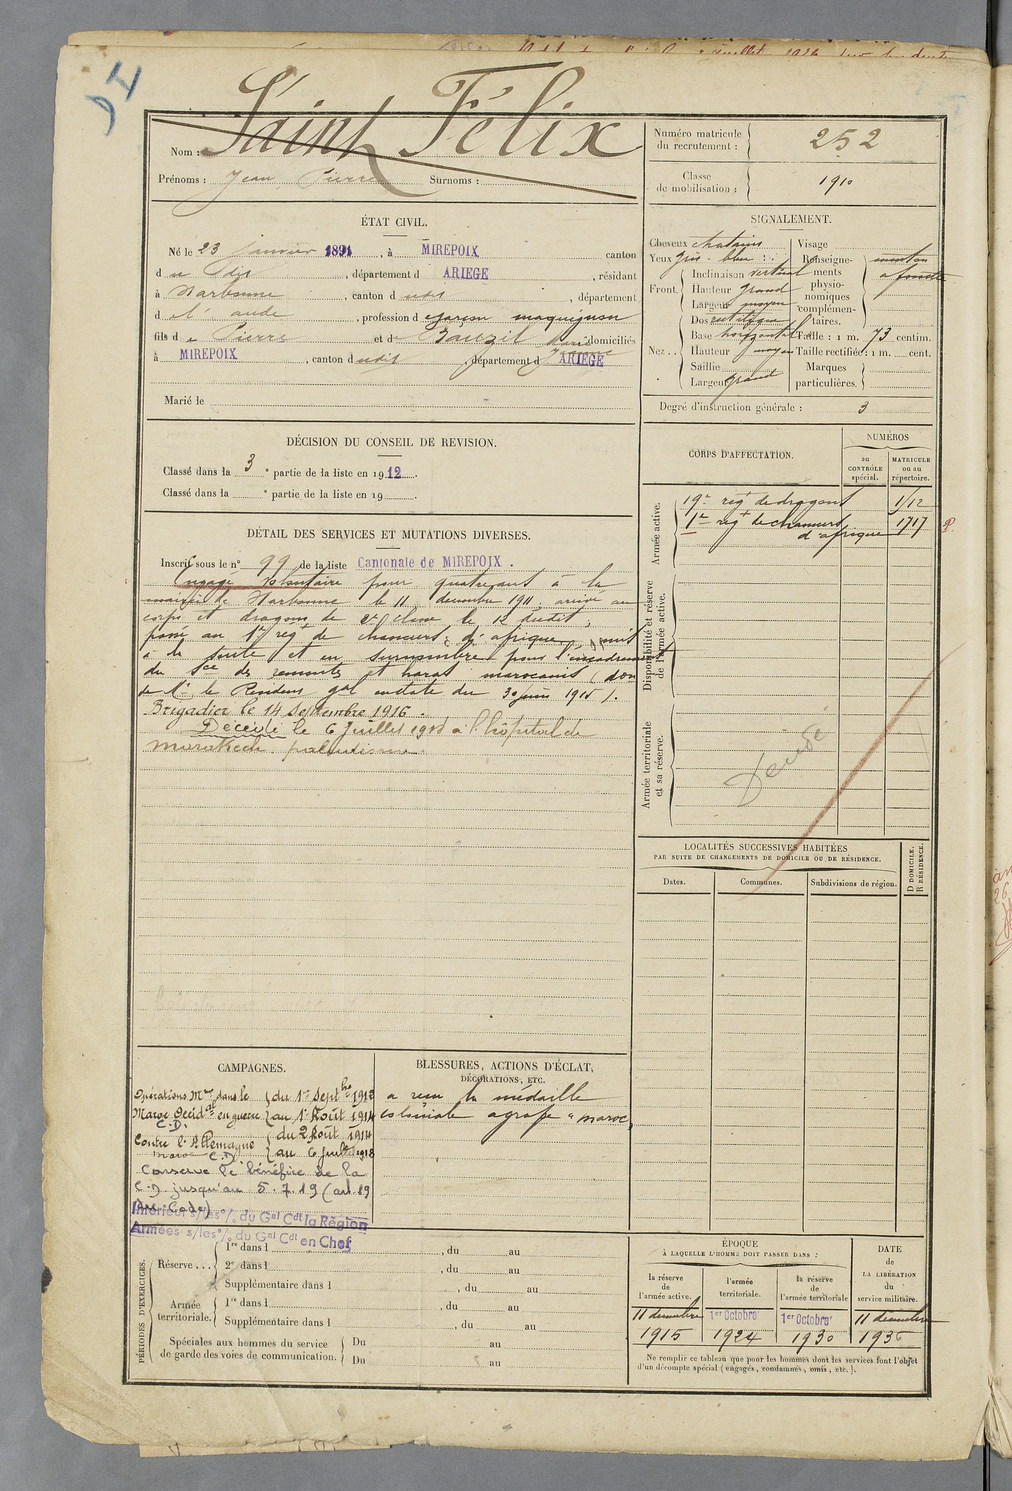 Saint Félix
Nom :
Prénoms : Jean Pierre Surnoms :
Numéro matricule du recrutement : 252
Classe de mobilisation : 1910
ÉTAT CIVIL.
Né le 23 janvier 1891, à MIREPOIX canton
d u dit, département d ARIEGE, résidant
à Narbonne, canton d udit, département
d e l'aude, profession d garçon maquignon
fils d e Pierre et d e Bauzil domiciliés
à MIREPOIX, canton d udit, département d ARIEGE
Marié le
SIGNALEMENT.
Cheveux chatains
Yeux gris-bleu
Front. Inclinaison vertical
Hauteur grand
Largeur moyen
Nez. Dos rectiligne
Base horizontal
Hauteur moyen
Saillie
Largeur grand
Visage
Renseignements physionomiques complémentaires. menton a fossette
Taille : 1 m. 73 centim.
Taille rectifiée : 1 m. cent.
Marques particulières.
Degré d'instruction générale : 3
DÉCISION DU CONSEIL DE REVISION.
Classé dans la 3e partie de la liste en 1912.
Classé dans la e partie de la liste en 19
CORPS D'AFFECTATION.
NUMÉROS
au CONTRÔLE spécial.
MATRICULE ou au répertoire.
Armée active.
19e régt de dragons 1/12
1er regt de chasseurs d'afrique 1717
Disponibilité et réserve de l'armée active.
Armée territoriale et sa réserve.
Décédé
DÉTAIL DES SERVICES ET MUTATIONS DIVERSES.
Inscrit sous le n° 99 de la liste Cantonale de MIREPOIX.
Engagé Volontaire pour quatre ans à la
mairie de Narbonne le 11 décembre 1911, arrivé au
corps et dragons de 2e classe le 12 dudit,
passé au 1er régt de chasseurs d'afrique
à la suite et en surnombre pour l'encadrement
du sce des remonte et haras marocains (don
de Mr le Résident gal en date du 30 juin 1915).
Brigadier le 14 Septembre 1916.
Décédé le 6 Juillet 1918 à l'hôpital de
Marakech. paludisme.
LOCALITÉS SUCCESSIVES HABITÉES
PAR SUITE DE CHANGEMENTS DE DOMICILE OU DE RÉSIDENCE.
Dates. Communes. Subdivisions de région.
D DOMICILE. R RÉSIDENCE.
CAMPAGNES.
Opérations Mres dans le Maroc Occidal en guerre C.D. du 1er Septbre 1912 au 1er Août 1914
Contre l'Allemagne Maroc C.D du 2 Août 1914 au 6 Juillet 1918
Conserve le bénéfice de la
C.D jusqu'au 5.7.19 (art. 19
Intérieur s/les o/ du Gal Cdt la Région
Armées s/les o/ du Gal Cdt en Chef
BLESSURES, ACTIONS D'ÉCLAT,
DÉCORATIONS, ETC.
a reçu la médaille
coloniale agrafe "maroc"
PÉRIODES D'EXERCICES.
Réserve...
1re dans l , du au
2e dans l , du au
Supplémentaire dans l , du au
Armée territoriale.
1re dans l , du au
Supplémentaire dans l , du au
Spéciales aux hommes du service de garde des voies de communication.
Du au
Du au
ÉPOQUE
À LAQUELLE L'HOMME DOIT PASSER DANS :
la réserve de l'armée active. 11 décembre 1915
l'armée territoriale. 1er Octobre 1924
la réserve de l'armée territoriale 1er Octobre 1930
DATE de LA LIBÉRATION du service militaire. 11 décembre 1936
Ne remplir ce tableau que pour les hommes dont les services font l'objet
d'un décompte spécial (engagés, condamnés, omis, etc.).